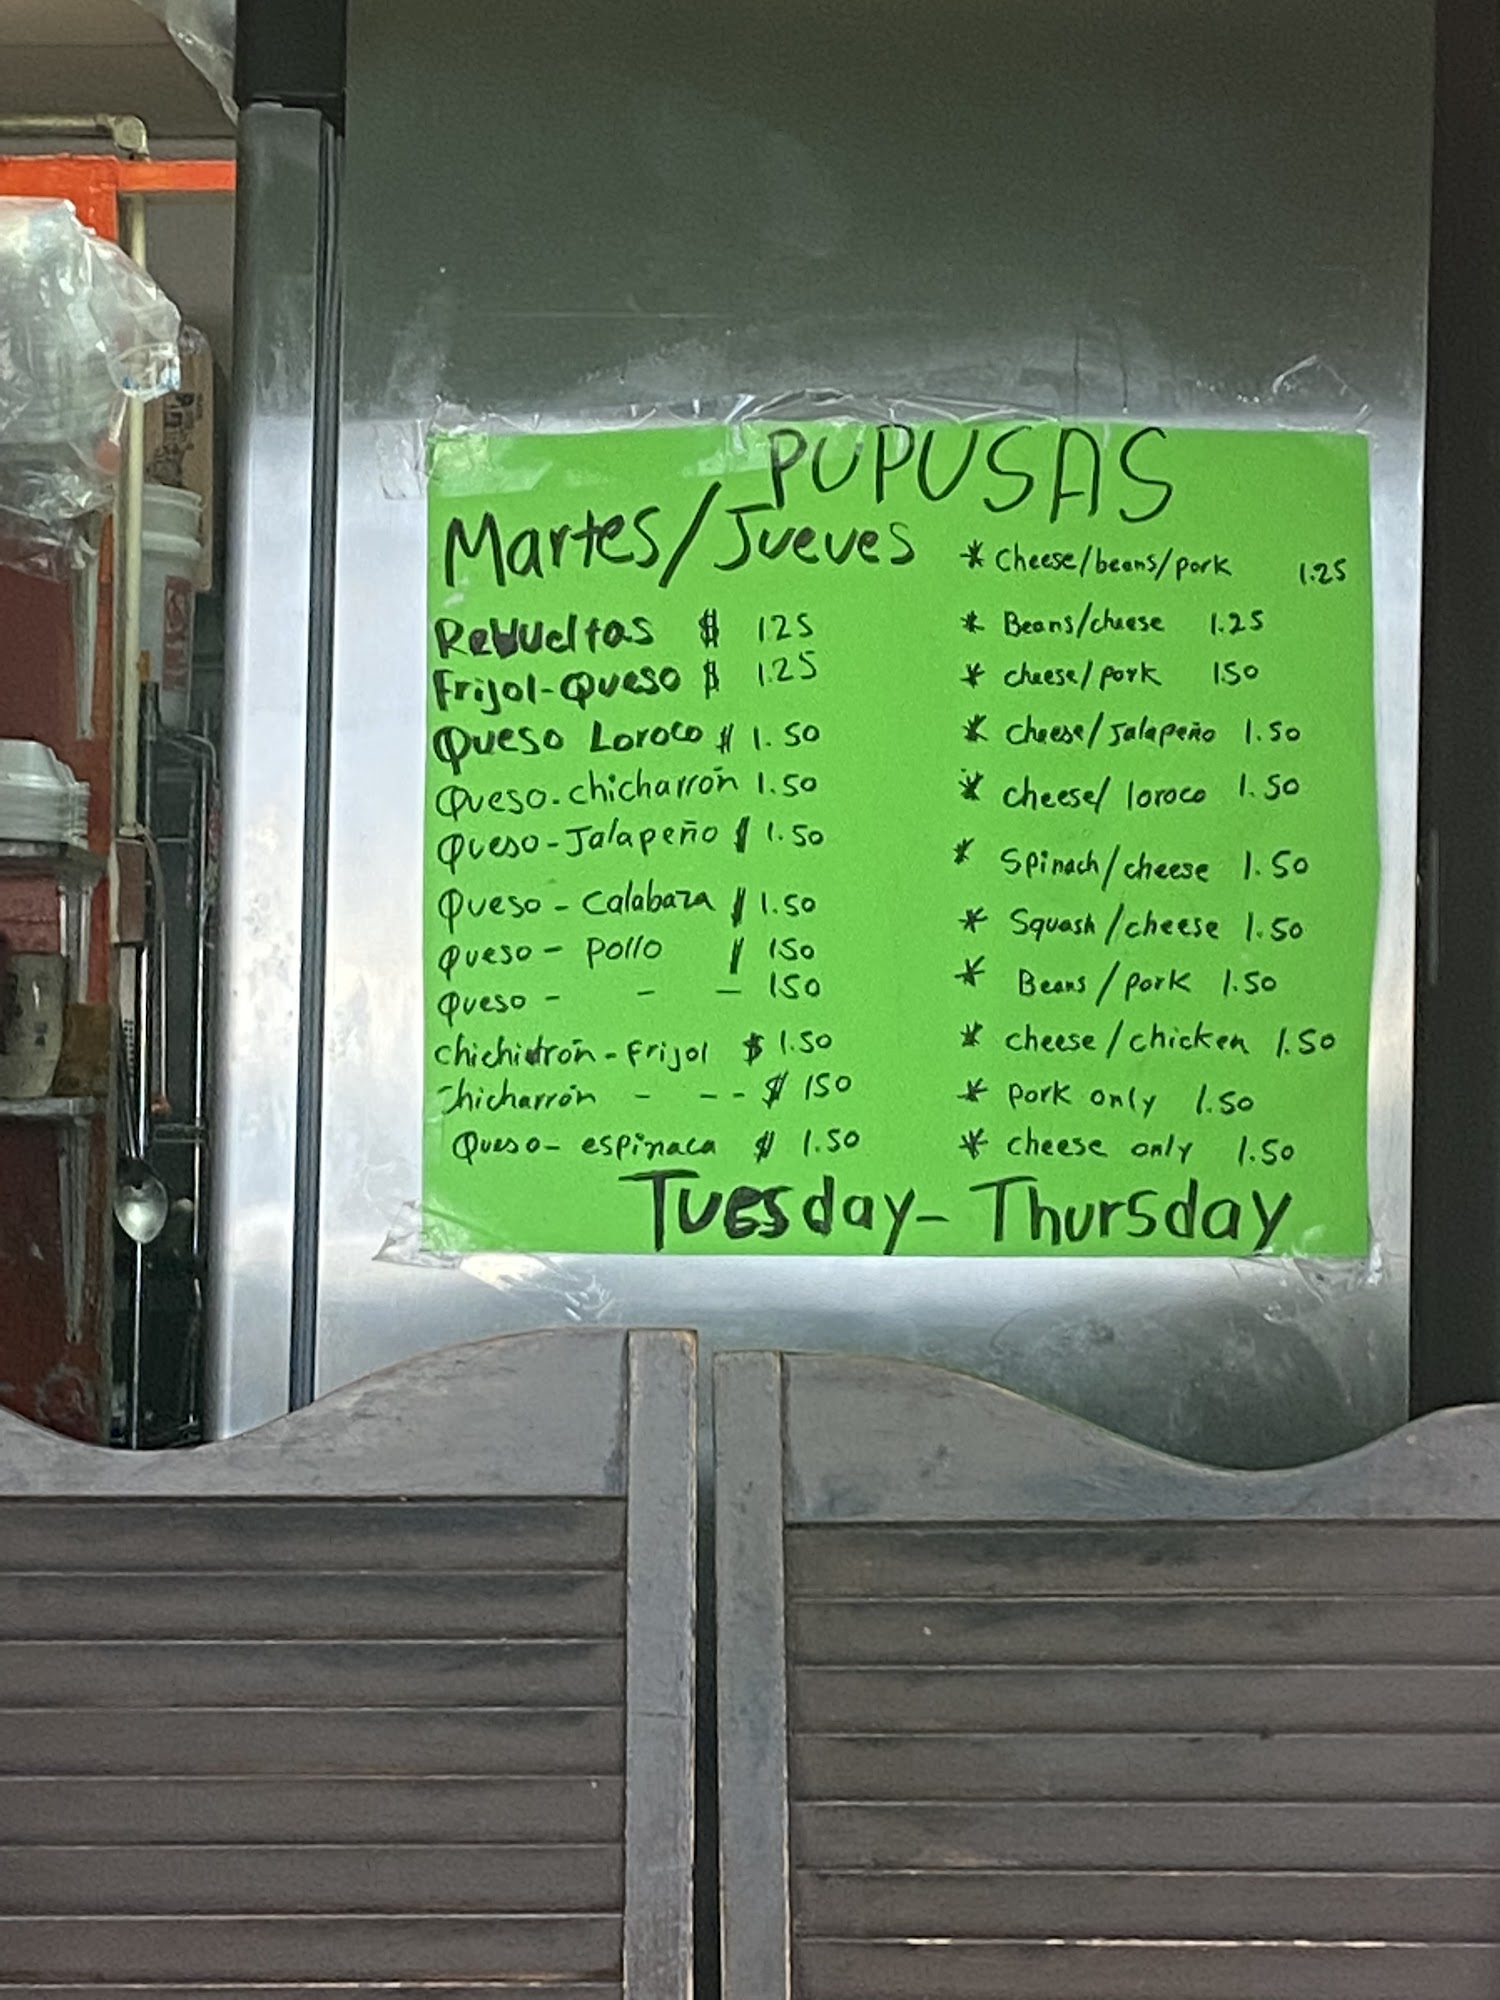 PUPUSAS
Martes/Jueves
Revueltas $ 125
Frijol-Queso $ 1.25
Queso Loroco $ 1.50
Queso-chicharrón 1.50
Queso-Jalapeño $ 1.50
Queso - Calabaza $ 1.50
Queso - pollo $ 150
Queso - - - 150
chichidrón-Frijol $ 1.50
chicharrón - - - - $ 150
Queso- espinaca $ 1.50
* Cheese/beans/pork 1.25
* Beans/cheese 1.25
* cheese/pork 150
* cheese/Jalapeño 1.50
* cheese/ loroco 1.50
* Spinach/cheese 1.50
* Squash/cheese 1.50
* Beans/pork 1.50
* cheese/chicken 1.50
* pork only 1.50
* cheese only 1.50
Tuesday- Thursday